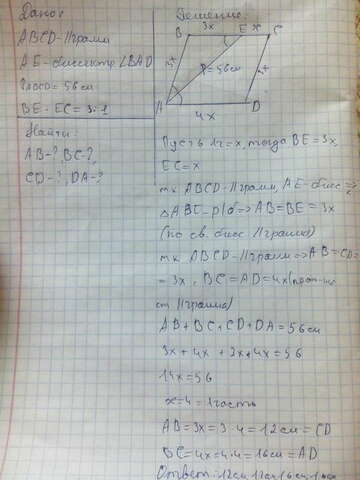 Дано:
ABCD - ||грамм
AE - биссектр ∠BAD
PABCD = 56 см
BE - EC = 3:1
Найти:
AB-?, BC-?,
CD-?, DA-?
Решение:
B 3x E x C
P = 56 см
A 4x D
Пусть 1ч = x, тогда BE = 3x,
EC = x
тк ABCD - ||грамм, AE - бисс =>
△ABE - р/б => AB = BE = 3x
(по св. бисс ||грамма)
тк ABCD - ||грамм => AB = CD =
= 3x, BC = AD = 4x (
||грамма)
AB + BC + CD + DA = 56 см
3x + 4x + 3x + 4x = 56
14x = 56
x = 4 = 1 часть
AB = 3x = 3 · 4 = 12 см = CD
BC = 4x = 4 · 4 = 16 см = AD
Ответ: 12см, 12см, 16см,